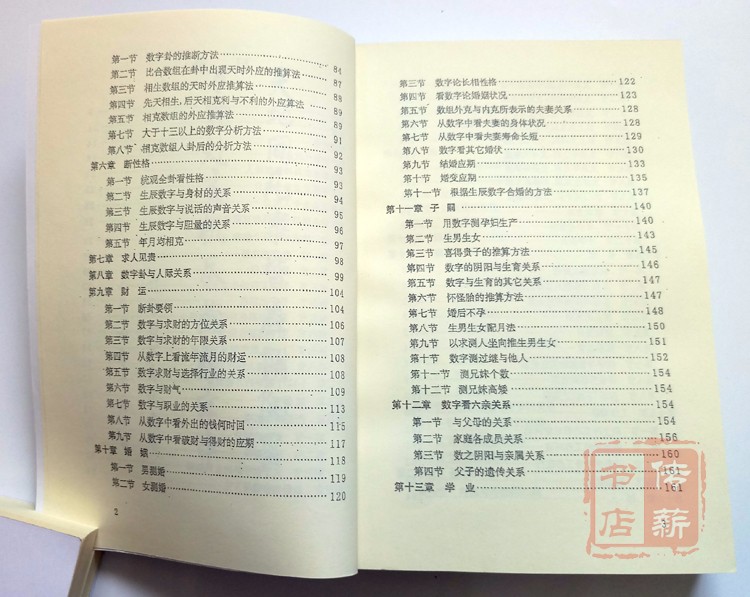 第一节 数字卦的推断方法 84
第二节 比合数组在卦中出现天时外应的推算法 87
第三节 相生数组的天时外应推算法 88
第四节 先天相生,后天相克利与不利的外应算法 89
第五节 相克数组的外应推算法 89
第七节 大于十三以上的数字分析方法 90
第八节 相克数组入卦后的分析方法 91
第六章 断性格 90
第一节 统观全卦看性格 90
第二节 生辰数字与身材的关系 94
第三节 生辰数字与说话的声音关系 95
第四节 生辰数字与胆量的关系 96
第五节 年月均相克 97
第七章 求人见贵 98
第八章 数字卦与人际关系 99
第九章 财 运 104
第一节 断卦要领 104
第二节 数字与求财的方位关系 106
第三节 数字与求财的年限关系 108
第四节 从数字上看流年流月的财运 108
第五节 数字求财与选择行业的关系 108
第六节 数字与财气 109
第七节 数字与职业的关系 113
第八节 从数字中看外出的钱何时回 115
第九节 从数字中看破财与得财的应期 117
第十章 婚 姻 118
第一节 男测婚 119
第二节 女测婚 120
2
第三节 数字论长相性格 122
第四节 看数字论婚姻状况 123
第五节 数组外克与内克所表示的夫妻关系 128
第六节 从数字中看夫妻的身体状况 128
第七节 从数字中看夫妻寿命长短 129
第八节 数字看其它婚状 130
第九节 结婚应期 133
第十节 婚变应期 135
第十一节 根据生辰数字合婚的方法 137
第十一章 子 嗣 140
第一节 用数字测孕妇生产 140
第二节 生男生女 142
第三节 喜得贵子的推算方法 145
第四节 数字的阴阳与生育关系 146
第五节 数字与生育的其它关系 147
第六节 怀怪胎的推算方法 147
第七节 婚后不孕 148
第八节 生男生女配月法 150
第九节 以求测人坐向推生男生女 151
第十节 数字测过继与他人 152
第十一节 测兄妹个数 154
第十二节 测兄妹高矮 154
第十二章 数字看六亲关系 154
第一节 与父母的关系 154
第二节 家庭各成员关系 156
第三节 数之阴阳与亲属关系 160
第四节 父子的遗传关系 161
第十三章 学 业 161
3
书店
薪